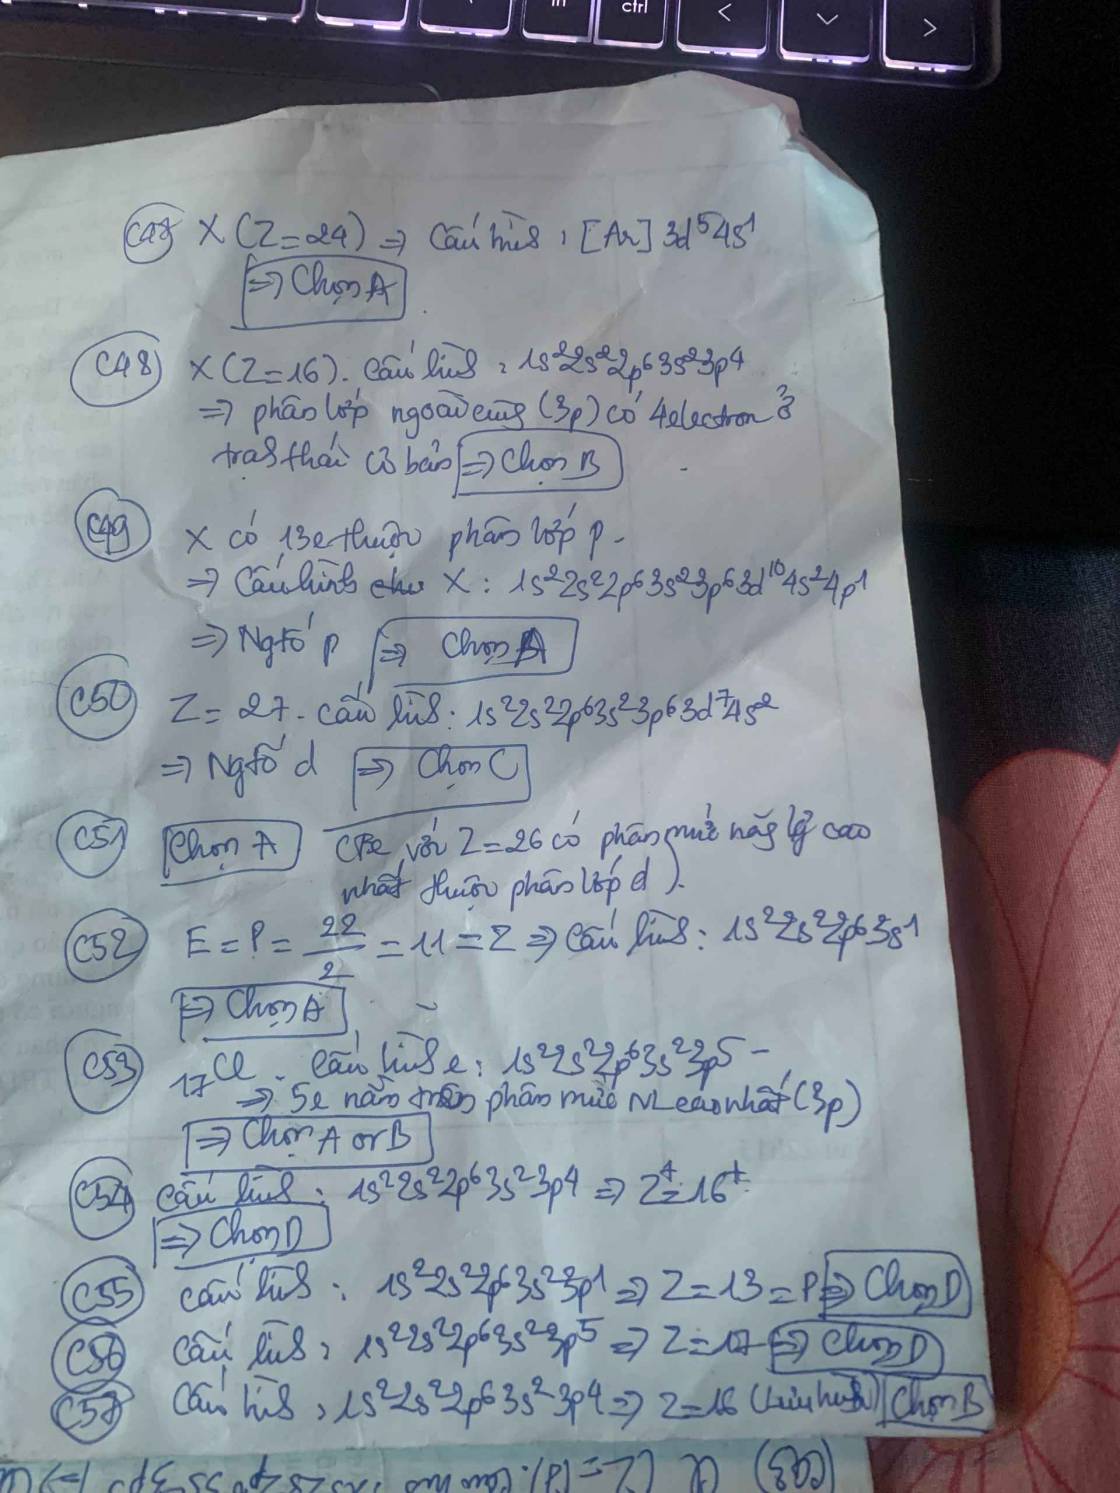 ctrl
C47 X (Z=24) => Cấu hình : [Ar] 3d⁵4s¹
=> Chọn A
C48 X (Z=16). Cấu hình : 1s²2s²2p⁶3s²3p⁴
=> phân lớp ngoài cùng (3p) có 4 electron ở
trạng thái cơ bản => Chọn B
C49 X có 13e thuộc phân lớp p.
=> Cấu hình X : 1s²2s²2p⁶3s²3p⁶3d¹⁰4s²4p¹
=> Ngtố p => Chọn A
C50 Z = 27. Cấu hình : 1s²2s²2p⁶3s²3p⁶3d⁷4s²
=> Ngtố d => Chọn C
C51 Chọn A (Fe với Z=26 có phân mức năg lg cao
nhất thuộc phân lớp d).
C52 E = P = 22/2 = 11 = Z => Cấu hình : 1s²2s²2p⁶3s¹
=> Chọn A
C53 ₁₇Cl . Cấu hình e : 1s²2s²2p⁶3s²3p⁵
=> 5e nằm trên phân mức NL cao nhất (3p)
=> Chọn A or B
C54 Cấu hình : 1s²2s²2p⁶3s²3p⁴ => Z⁺=16⁺
=> Chọn D
C55 Cấu hình : 1s²2s²2p⁶3s²3p¹ => Z=13=P => Chọn D
C56 Cấu hình : 1s²2s²2p⁶3s²3p⁵ => Z=17 => Chọn D
C57 Cấu hình : 1s²2s²2p⁶3s²3p⁴ => Z=16 (Lưu huỳnh) Chọn B